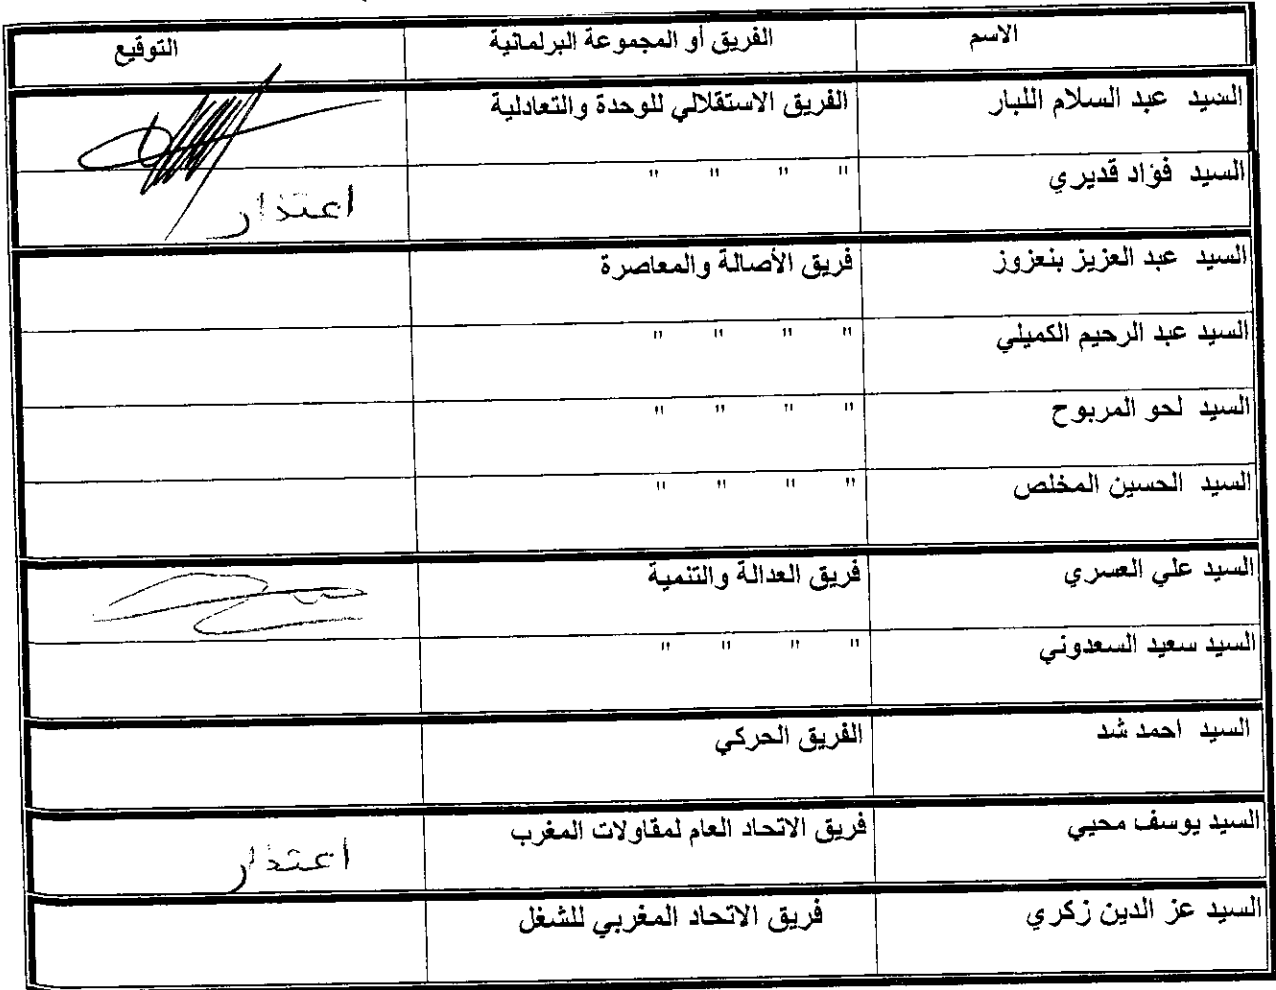 الاسم الفريق أو المجموعة البرلمانية التوقيع
السيد عبد السلام اللبار الفريق الاستقلالي للوحدة والتعادلية
السيد فؤاد قديري " " " " اعتذار
السيد عبد العزيز بنعزوز فريق الأصالة والمعاصرة
السيد عبد الرحيم الكميلي " " " "
السيد لحو المربوح " " " "
السيد الحسين المخلص " " " "
السيد علي العسري فريق العدالة والتنمية
السيد سعيد السعدوني " " " "
السيد احمد شد الفريق الحركي
السيد يوسف محيي فريق الاتحاد العام لمقاولات المغرب اعتذار
السيد عز الدين زكري فريق الاتحاد المغربي للشغل